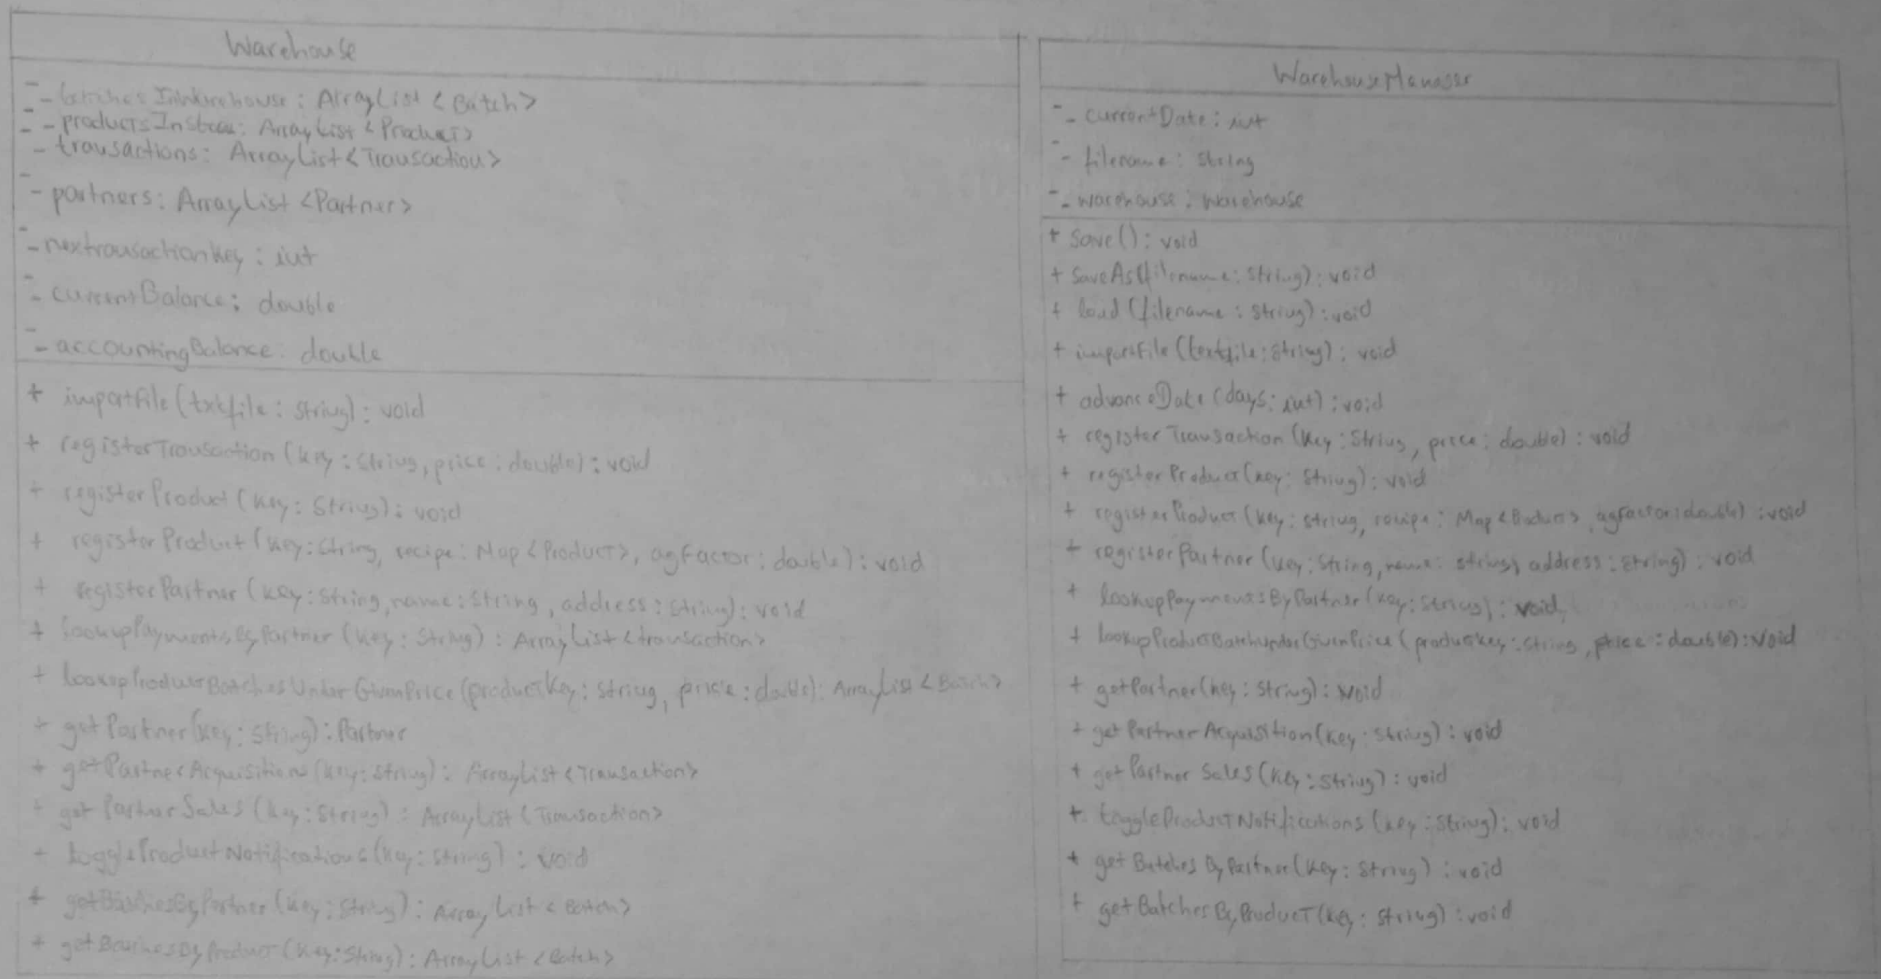 Warehouse
- batchesInWarehouse: ArrayList <Batch>
- productsInStock: ArrayList <Product>
- transactions: ArrayList <Transaction>
- partners: ArrayList <Partner>
- nextransactionkey: int
- currentBalance: double
- accountingBalance: double
+ importFile(txtfile: String): void
+ registerTransaction (key: String, price: double): void
+ registerProduct (key: String): void
+ registerProduct (key: String, recipe: Map <Product>, agFactor: double): void
+ registerPartner (key: String, name: String, address: String): void
+ lookupPaymentsByPartner (key: String): ArrayList <transaction>
+ lookupProductBatchesUnderGivenPrice (productKey: String, price: double): ArrayList <Batch>
+ getPartner(key: String): Partner
+ getPartnerAcquisition (key: String): ArrayList <Transaction>
+ getPartnerSales (key: String): ArrayList <Transaction>
+ toggleProductNotifications (key: String): void
+ getBatchesByPartner (key: String): ArrayList <Batch>
+ getBatchesByProduct (key: String): ArrayList <Batch>
WarehouseManager
- currentDate: int
- filename: String
- warehouse: Warehouse
+ save(): void
+ saveAs(filename: String): void
+ load (filename: String): void
+ importFile (textfile: String): void
+ advanceDate (days: int): void
+ registerTransaction (key: String, price: double): void
+ registerProduct (key: String): void
+ registerProduct (key: String, recipe: Map <Product>, agFactor: double): void
+ registerPartner (key: String, name: String, address: String): void
+ lookupPaymentsByPartner (key: String): void
+ lookupProductBatchUnderGivenPrice (productkey: String, price: double): void
+ getPartner(key: String): void
+ getPartnerAcquisition (key: String): void
+ getPartnerSales (key: String): void
+ toggleProductNotifications (key: String): void
+ getBatchesByPartner (key: String): void
+ getBatchesByProduct (key: String): void